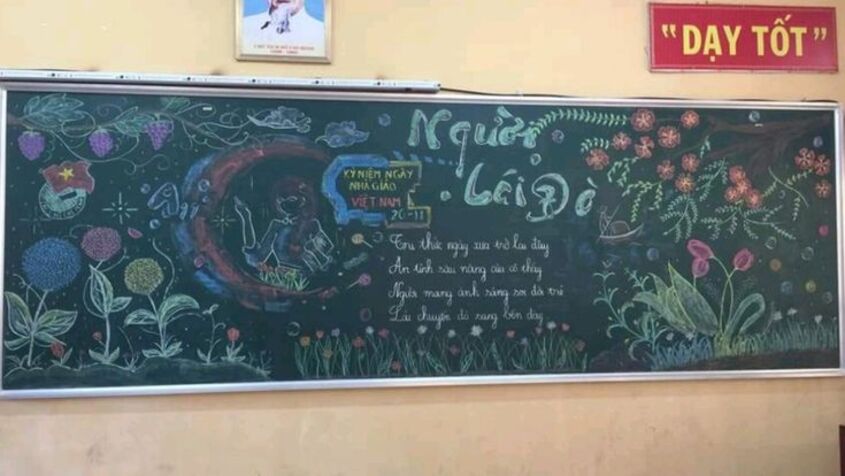 “DẠY TỐT”
Người
Lái Đò
KỶ NIỆM NGÀY
NHÀ GIÁO
VIỆT NAM
20-11
Tri thức ngày xưa trở lại đây
Ân tình sâu nặng của cô thầy
Người mang ánh sáng soi đời trẻ
Lái chuyến đò sang bến đây